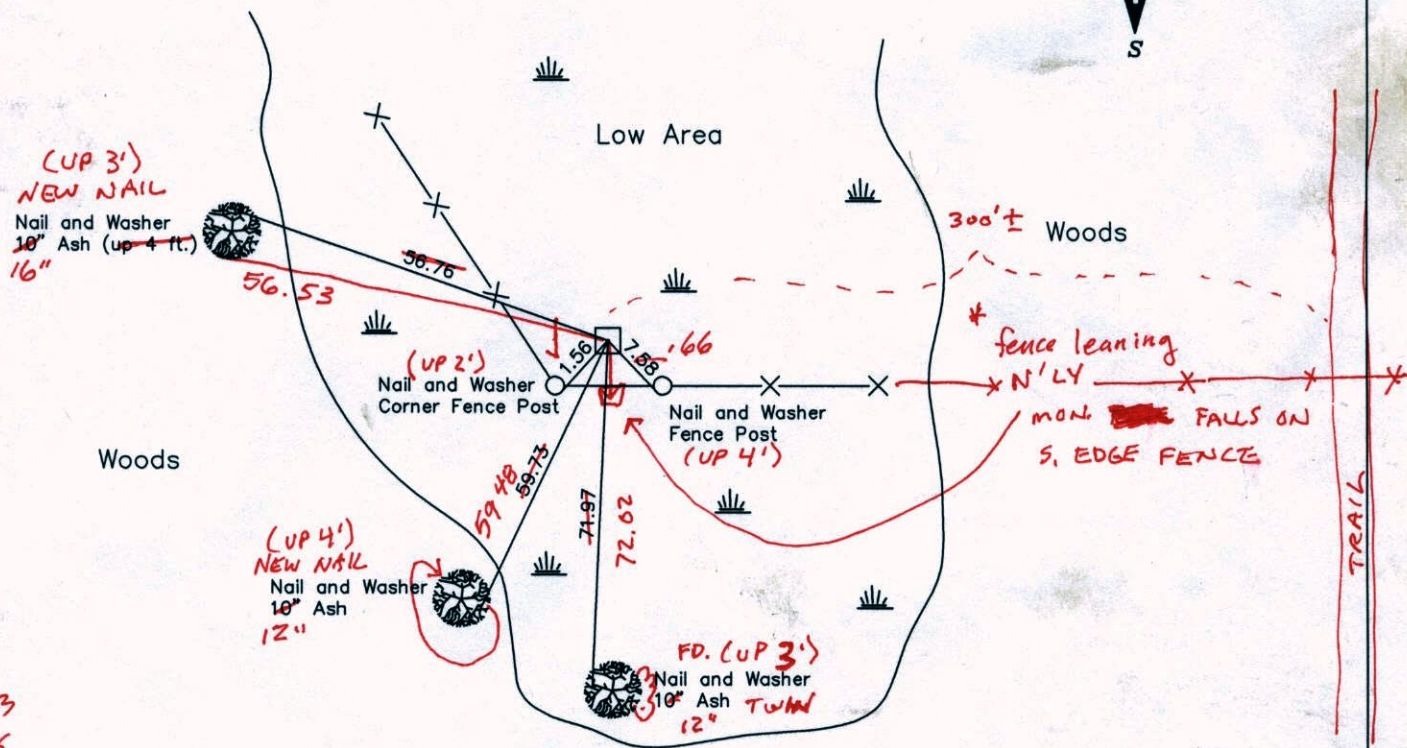 S
Low Area
(UP 3')
NEW NAIL
Nail and Washer
10" Ash (up 4 ft.)
16"
56.76
56.53
300'±
Woods
*
fence leaning
N'LY
MON. FALLS ON
S. EDGE FENCE
(UP 2')
Nail and Washer
Corner Fence Post
1.56
7.58
.66
Nail and Washer
Fence Post
(UP 4')
Woods
59.73
59.48
71.97
72.02
TRAIL
(UP 4')
NEW NAIL
Nail and Washer
10" Ash
12"
FD. (UP 3')
Nail and Washer
10" Ash TWIN
12"
3